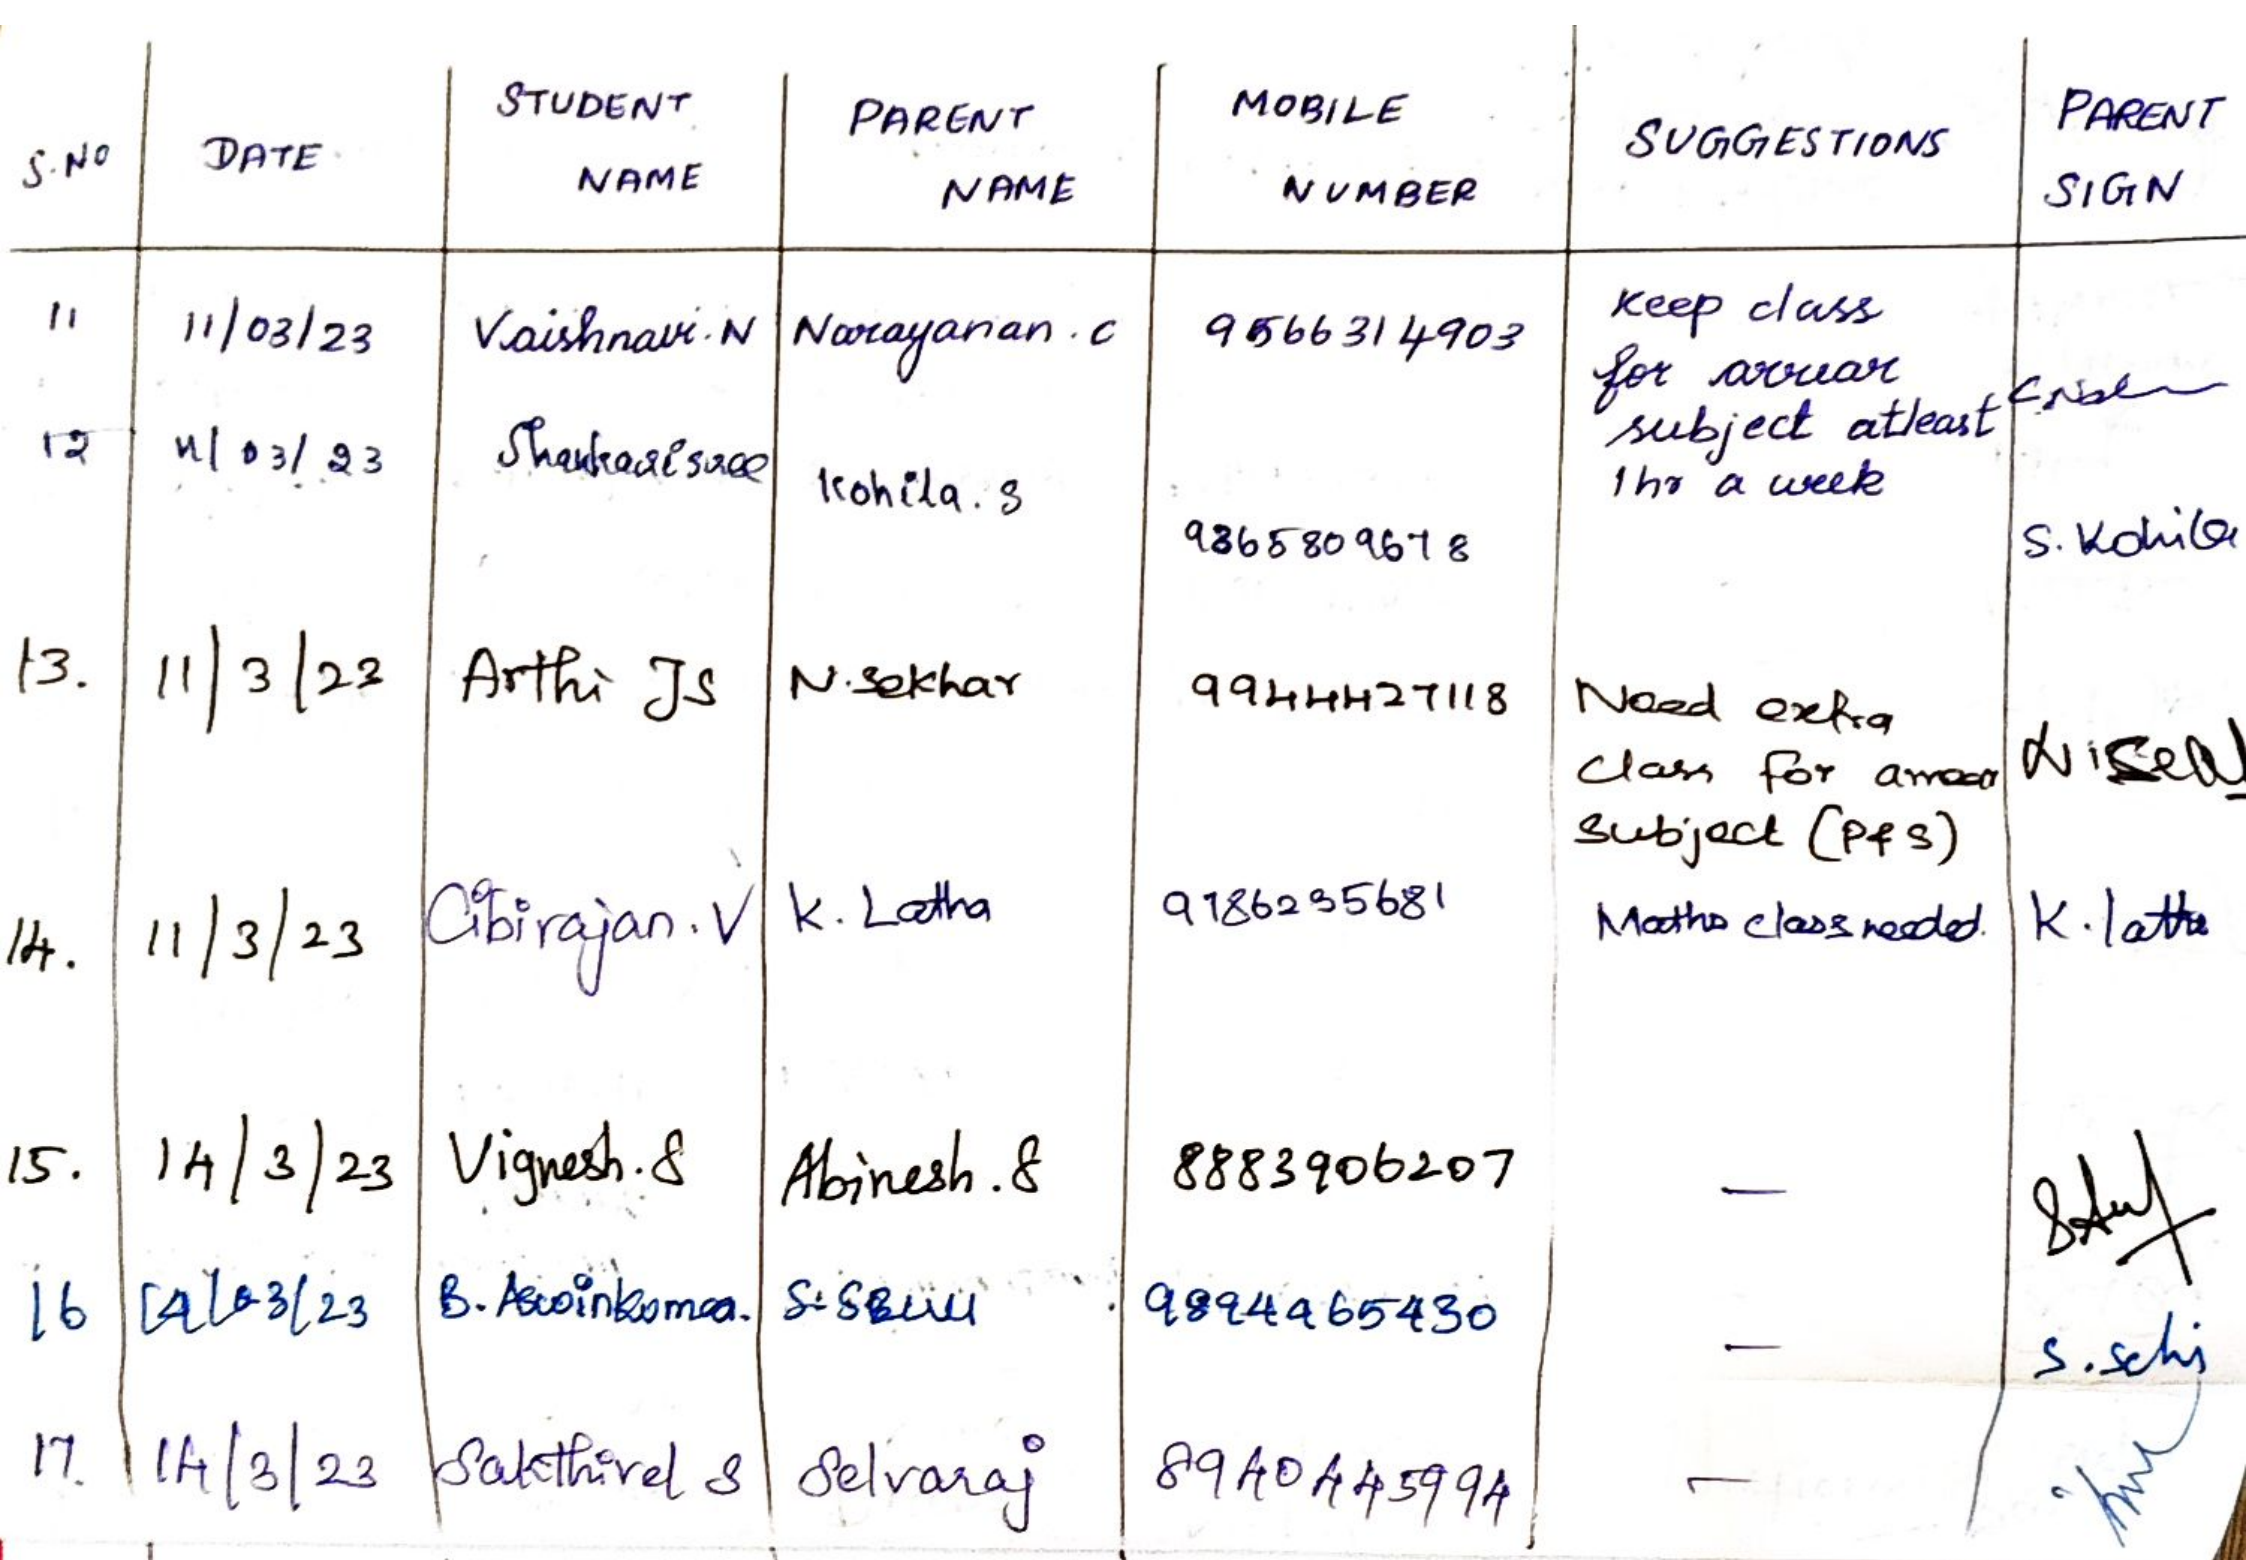 S.NO DATE STUDENT NAME PARENT NAME MOBILE NUMBER SUGGESTIONS PARENT SIGN
11 11/03/23 Vaishnavi.N Narayanan.c 9566314903 Keep class
for arrear
subject atleast
1hr a week
12 11/03/23 Kohila.S 9865809678 S.Kohila
13. 11/3/23 Arthi JS N.Sekhar 9944427118 Need extra
class for arrear
subject (P&S)
14. 11/3/23 Cibirajan.V K.Latha 9786235681 Maths class needed. K.latha
15. 14/3/23 Vignesh.S Abinesh.S 8883906207 —
16 14/03/23 B. 9894965430 —
17. 14/3/23 Sakthivel S Selvaraj 8940445994 —